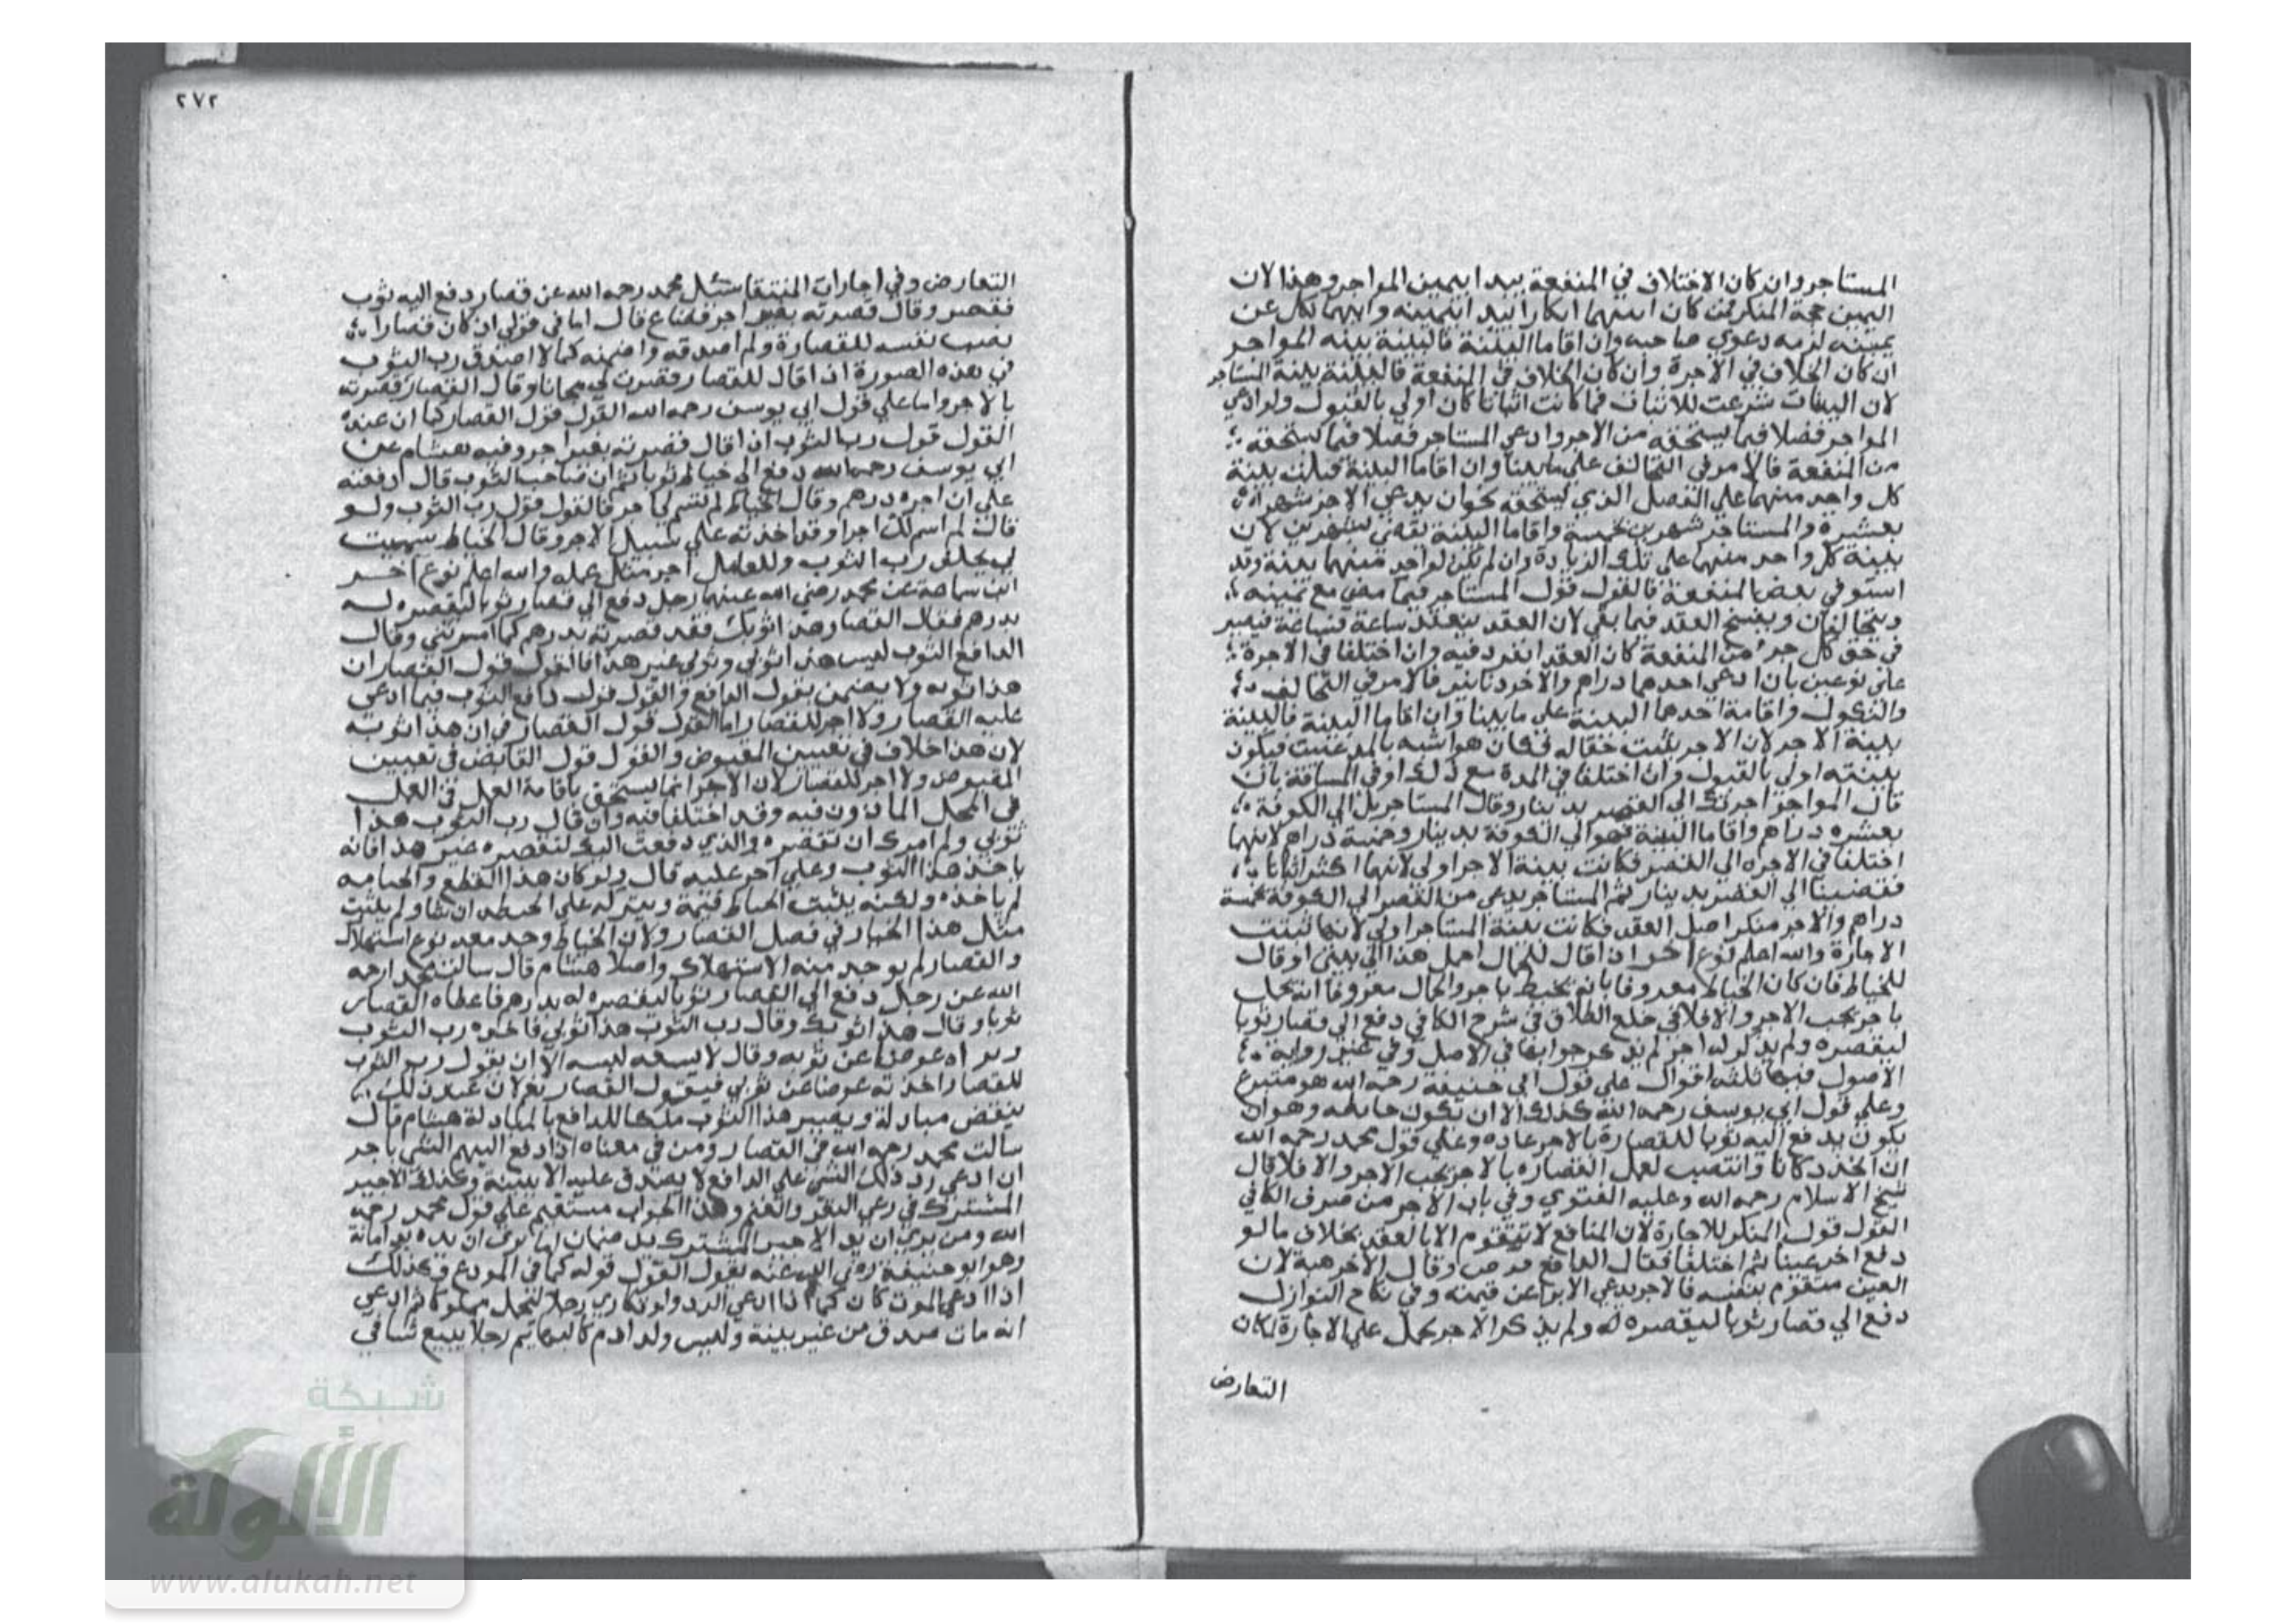 المستاجر وان كان الاختلاف في المنفعة يبدا بيمين المواجر وهذا لان
اليمين حجة المنكر فمن كان اسبقهما انكارا يبدا بيمينه وايهما نكل عن
يمينه لزمه دعوي صاحبه وان اقاما البينة فالبينة بينة المواجر
ان كان الخلاف في الاجرة وان كان الخلاف في المنفعة فالبينة بينة المستاجر
لان البينات شرعت للاثبات فما كانت اثباتا كان اولي بالقبول ولو ادعي
المواجر فضلا فيما يستحقه من الاجر وادعي المستاجر فضلا فيما يستحقه
من المنفعة فالامر في التحالف علي ما بينا وان اقاما البينة قبلت بينة
كل واحد منهما علي الفضل الذي يستحقه نحو ان يدعي الاجر شهرا
بعشرة والمستاجر شهرين بخمسة واقاما البينة تقضي شهرين لان
بينة كل واحد منهما علي تلك الزيادة وان لم تكن لواحد منهما بينة وقد
استوفي بعض المنفعة فالقول قول المستاجر فيما مضي مع يمينه
ويتحالفان ويفسخ العقد فيما بقي لان العقد ينعقد ساعة فساعة فيصير
في حق كل جزء من المنفعة كان العقد انفرد فيه وان اختلفا في الاجرة
علي نوعين بان ادعي احدهما دراهم والاخر دنانير فالامر في التحالف
والنكول واقامة احدهما البينة علي ما بينا وان اقاما البينة فالبينة
بينة الاجر لان الاجر يثبت حقا له فكان هو اشبه بالمدعيت فيكون
بينته اولي بالقبول وان اختلفا في المدة مع ذلك او في المسافة بان
قال المواجر اجرتك الي القصر بدينار وقال المستاجر بل الي الكوفة
بعشرة دراهم واقاما البينة فهو الي الكوفة بدينار وخمسة دراهم لانهما
اختلفا في الاجرة الي القصر فكانت بينة الاجر اولي لانها اكثر اثباتا
فقضينا الي القصر بدينار ثم المستاجر يدعي من القصر الي الكوفة بخمسة
دراهم والاجر منكر اصل العقد فكانت بينة المستاجر اولي لانها تثبت
الاجارة والله اعلم نوع اخر اذا قال للحمال احمل هذا الي بيتي او قال
للخياط فان كان الخياط معروفا بانه يخيط باجر والحمال معروفا انه يحمل
باجر يجب الاجر والا فلا في خلع الطلاق في شرح الكافي دفع الي قصار ثوبا
ليقصره ولم يذكر له اجر لم يذكر جوابها في الاصل وفي غير رواية
الاصول فيها ثلثة اقوال علي قول ابي حنيفة رحمه الله هو متبرع
وعلي قول ابي يوسف رحمه الله كذلك الا ان تكون خا وهو ان
يكون يدفع اليه ثوبا للقصارة بالاجر عادة وعلي قول محمد رحمه الله
ان اتخذ دكانا وانتصب لعمل القصارة بالاجر يجب الاجر والا فلا قال
شيخ الاسلام رحمه الله وعليه الفتوي وفي باب الاجر من صرف الكافي
القول قول المنكر للاجارة لان المنافع لا تتقوم الا بالعقد بخلاف ما لو
دفع اخر عينا ثم اختلفا فقال الدافع قرض وقال الاخر هبة لان
العين متقوم بنفسه فالاخر يدعي الابرا عن قيمته وفي نكاح النوازل
دفع الي قصار ثوبا ليقصره له ولم يذكر الاجر يحمل علي الاجارة لمكان
التعارض
٢٧٢
التعارض وفي اجارات المنتقا سئل محمد رحمه الله عن قصار دفع اليه ثوب
فقصر وقال قصرته بغير اجر فضاع قال اما في قولي ان كان قصارا
نصب نفسه للقصارة ولم اصدقه واضمنه كما لا اصدق رب الثوب
في هذه الصورة اذا قال للقصار قصرت لي مجانا وقال القصار قصرته
بالاجر واما علي قول ابي يوسف رحمه الله القول قول القصار كما ان عنده
القول قول رب الثوب اذا قال قصرته بغير اجر وفيه هشام عن
ابي يوسف رحمه الله دفع الي خياط ثوبا ثم ان صاحب الثوب قال دفعته
علي ان اجره درهم وقال الخياط لم تسم لي اجر فالقول قول رب الثوب ولو
قال لم اسم لك اجرا وقد اخذته علي سبيل الاجر وقال الخياط سميت
لي يحلف رب الثوب وللعامل اجر مثل عمله والله اعلم نوع اخر
ابن سماعة عن محمد رضي الله عنهما رجل دفع الي قصار ثوبا ليقصره له
بدرهم فقال القصار هذا ثوبك فقد قصرته بدرهم كما امرتني وقال
الدافع الثوب ليس هذا ثوبي وثوبي غير هذا فالقول قول القصار ان
هذا ثوبه ولا يضمن بقول الدافع والقول قول دافع الثوب فيما ادعي
عليه القصار ولا اجر للقصار اما القول قول القصار في ان هذا ثوبه
لان هذا خلاف في تعيين المقبوض والقول قول القابض في تعيين
المقبوض ولا اجر للقصار لان الاجر انما يستحق باقامة العمل في العمل
في المحل الماذون فيه وقد اختلفا فيه وان قال رب الثوب هذا
ثوبي ولم امرك ان تقصره والذي دفعت اليك لتقصره غير هذا فانه
ياخذ هذا الثوب وعلي اجر عليه قال ولو كان هذا القطع والخياطة
لم ياخذه ولكنه يثبت الخياط قيمة ويتركه علي الخياط ان شا ولم يثبت
مثل هذا الخيار في فصل القصار ولان الخياط وجد معه نوع استهلاك
والقصار لم يوجد منه الاستهلاك واصلا هشام قال سالت محمدا رحمه
الله عن رجل دفع الي القصار ثوبا ليقصره له بدرهم فاعطاه القصار
ثوبا وقال هذا ثوبك وقال رب الثوب هذا ثوبي فاخذه رب الثوب
ويراه عوضا عن ثوبه وقال لا يسعه لبسه الا ان يقول رب الثوب
للقصار اخذته عوضا عن ثوبي فيقول القصار نعم لان عند ذلك
ينتقض مبادلة ويصير هذا الثوب ملكا للدافع بالمبادلة هشام قال
سالت محمد رحمه الله في القصار ومن في معناه اذا دفع اليهم الشي باجر
ان ادعي رد ذلك الشي علي الدافع لا يصدق عليه الا ببينة وكذلك الاجير
المشترك في رعي البقر والغنم وهذا الجواب مستقيم علي قول محمد رحمه
الله ومن يري ان يد الاجير المشترك يد ضمان اما من يري ان يده يد امانة
وهو ابو حنيفة رضي الله عنه يقول القول قوله كما في المودع وكذلك
اذا ادعي الموت كان كما اذا ادعي الرد ولو تكاري رجلا لتحمل مملوكا ثم ادعي
انه مات صدق من غير بينة وليس ولد ادم كالبهايم رجلا يبيع شيا في